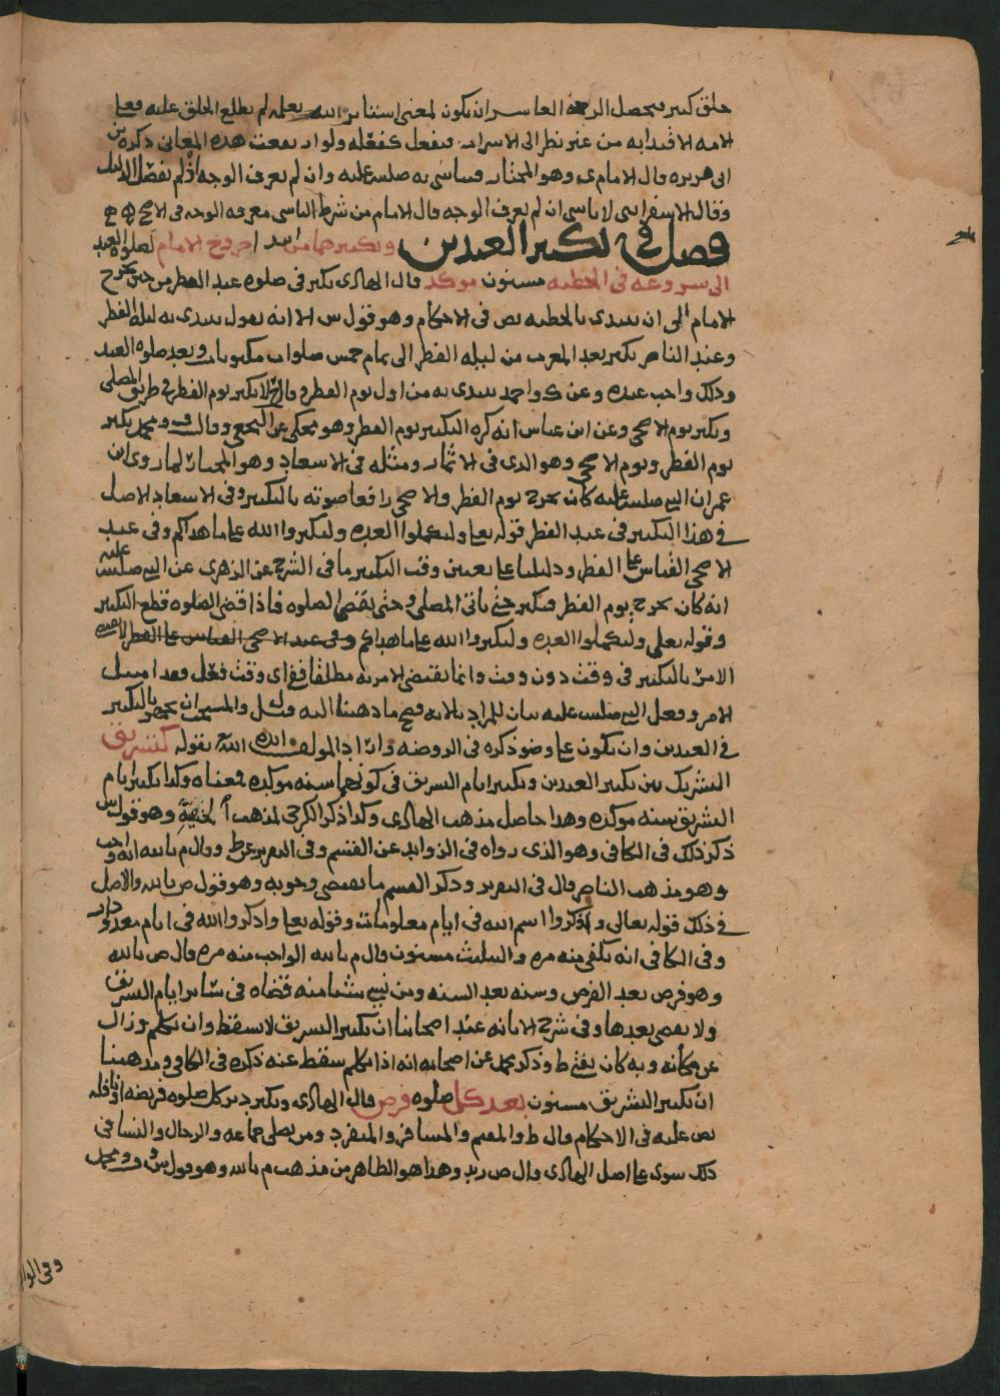 خلق كثير فيحصل الرحمة العاشر ان يكون لمعنى استاثر الله بعلمه لم يطلع الخلق عليه فعلى
الامة الاقتداء به من غير نظر الى الاسرار فيفعل كفعله ولو ارتفعت هذه المعاني ذكره بن
ابي هريرة قال الامام ى وهو المختار فيتاسى به صلى الله عليه وان لم يعرف الوجه اذ لم يفصل الدليل
وقال الاسفرايني لا يتاسى ان لم يعرف الوجه قال الامام من شرط التاسي معرفة الوجه في الاصح
فصل في تكبير العيدين وتكبيرهما من خروج الامام لصلوة العيد
الى شروعه في الخطبة مسنون موكد قال الهادى يكبر في صلوة عيد الفطر من حين يخرج
الامام الى ان يبتدى بالخطبة نص في الاحكام وهو قول س الا انه يقول يبتدى به ليلة الفطر
وعند الناصر يكبر بعد المغرب من ليلة الفطر الى تمام خمس صلوات مكتوبات وبعد صلوة العيد
وذلك واجب عنده وعن ك واحمد يبتدى به من اول يوم الفطر وقال ح لا يكبر يوم الفطر في طريق المصلى
ويكبر يوم الاضحى وعن ابن عباس انه كره التكبير يوم الفطر وهو محكي عن النخعي وقال ف ومحمد يكبر
يوم الفطر ويوم الاضحى وهو الذى في الاثمار ومثله في الاسعاد وهو المختار لما روى ابن
عمر ان النبي صلى الله عليه كان يخرج يوم الفطر والاضحى رافعا صوته بالتكبير وفي الاسعاد الاصل
في هذا التكبير في عيد الفطر قوله تعالى ولتكملوا العدة ولتكبروا الله على ما هداكم وفي عيد
الاضحى القياس على الفطر ودليلنا على تعيين وقت التكبير ما في الشرح عن الزهرى عن النبي صلى الله عليه
انه كان يخرج يوم الفطر فيكبر حتى ياتى المصلى وحتى يقضى الصلوة فاذا قضى الصلوة قطع التكبير
وقوله تعالى ولتكملوا العدة ولتكبروا الله على ما هداكم وفي عيد الاضحى القياس على الفطر لا يفيد
الامر بالتكبير في وقت دون وقت وانما يقتضى الامر به مطلقا ففى اى وقت فعل فقد امتثل
الامر وفعل النبي صلى الله عليه بيان للمراد بالاية فصح ما ذهبنا اليه وقيل والمستحب ان يجهر بالتكبير
في العيدين وان يكون على وضو ذكره في الروضة واراد المولف ايده الله بقوله كتشريق
التشريك بين تكبير العيدين وتكبير ايام التشريق في كونهما سنة موكدة فمعناه وكذا تكبير ايام
التشريق سنة موكدة وهذا حاصل مذهب الهادى وكذا ذكر الكرخى لمذهب الحنفية وهو قول س
ذكر ذلك في الكافي وهو الذى رواه في الزوايد عن القسم وفي التقرير عن ط وقال م بالله انه واجب
وهو مذهب الناصر قال في التقرير وذكر القسم ما يقتضى وجوبه وهو قول ص بالله والاصل
في ذلك قوله تعالى واذكروا اسم الله في ايام معلومات وقوله تعالى واذكروا الله في ايام معدودات
وفي الكافي انه يكفى منه مرة والتثليث مسنون قال م بالله الواجب منه مرة قال ص بالله
وهو فرض بعد الفرض وسنة بعد السنة ومن نسى شيئا منه قضاه في سائر ايام التشريق
ولا يقضى بعدها وفي شرح الابانة عند اصحابنا ان تكبير التشريق لا يسقط وان تكلم وزال
عن مكانه وبه كان يفتى ط وذكر محمد عن اصحابه انه اذا تكلم سقط عنه ذكره في الكافي ومذهبنا
ان تكبير التشريق مسنون بعد كل صلوة فرض قال الهادى ويكبر دبر كل صلوة فريضة او نافلة
نص عليه في الاحكام قال ط والمقيم والمسافر والمنفرد ومن يصلى جماعة والرجال والنسا في
ذلك سوى على اصل الهادى قال ص زيد وهذا هو الظاهر من مذهب م بالله وهو قول ش و ف ومحمد
وفي الوا